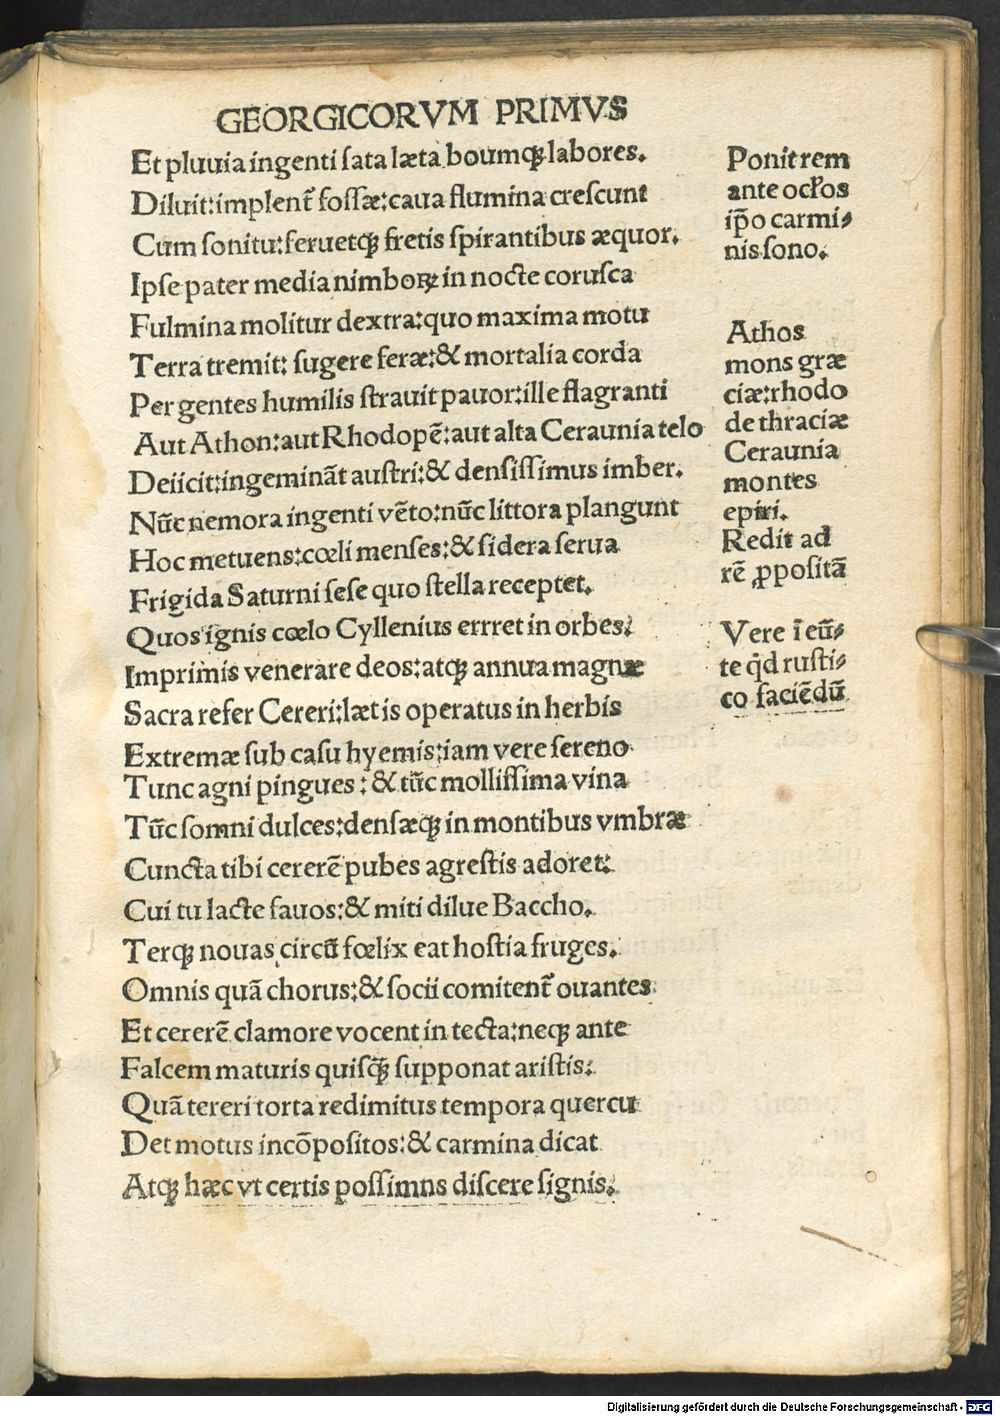 GEORGICORVM PRIMVS
Et pluuia ingenti ſata læta boumqꝫ labores.
Diluit:implent᷑ foſſæ:caua flumina creſcunt
Cum ſonitu:feruetqꝫ fretis ſpirantibus æquor.
Ipſe pater media nimboꝝ in nocte coruſca
Fulmina molitur dextra:quo maxima motu
Terra tremit: fugere feræ:& mortalia corda
Per gentes humilis ſtrauit pauor:ille flagranti
Aut Athon:aut Rhodopē:aut alta Ceraunia telo
Deiicit:ingemināt auſtri:& denſiſſimus imber.
Nūc nemora ingenti vēto:nūc littora plangunt
Hoc metuens:cœli menſes:& ſidera ſerua
Frigida Saturni ſeſe quo ſtella receptet.
Quos ignis cœlo Cyllenius errret in orbes:
Imprimis venerare deos:atqꝫ annua magnæ
Sacra refer Cereri:lætis operatus in herbis
Extremæ ſub caſu hyemis:iam vere ſereno
Tunc agni pingues:& tūc molliſſima vina
Tūc ſomni dulces:denſæqꝫ in montibus vmbræ
Cuncta tibi cererē pubes agreſtis adoret:
Cui tu lacte fauos:& miti dilue Baccho.
Terqꝫ nouas circū fœlix eat hoſtia fruges.
Omnis quā chorus:& ſocii comitent᷑ ouantes
Et cererē clamore vocent in tecta:neqꝫ ante
Falcem maturis quiſqꝫ̄ ſupponat ariſtis:
Quā tereri torta redimitus tempora quercu
Det motus incōpoſitos:& carmina dicat
Atqꝫ hæc vt certis poſſimns diſcere ſignis.
Ponit rem
ante ocl̓os
ip̄o carmi⸗
nis ſono.
Athos
mons græ
ciæ:rhodo
de thraciæ
Ceraunia
montes
epiri.
Redit ad
rē ꝓpoſitā
Vere īeū⸗
te qd̄ ruſti⸗
co faciēdū
Digitalisierung gefördert durch die Deutsche Forschungsgemeinschaft - DFG